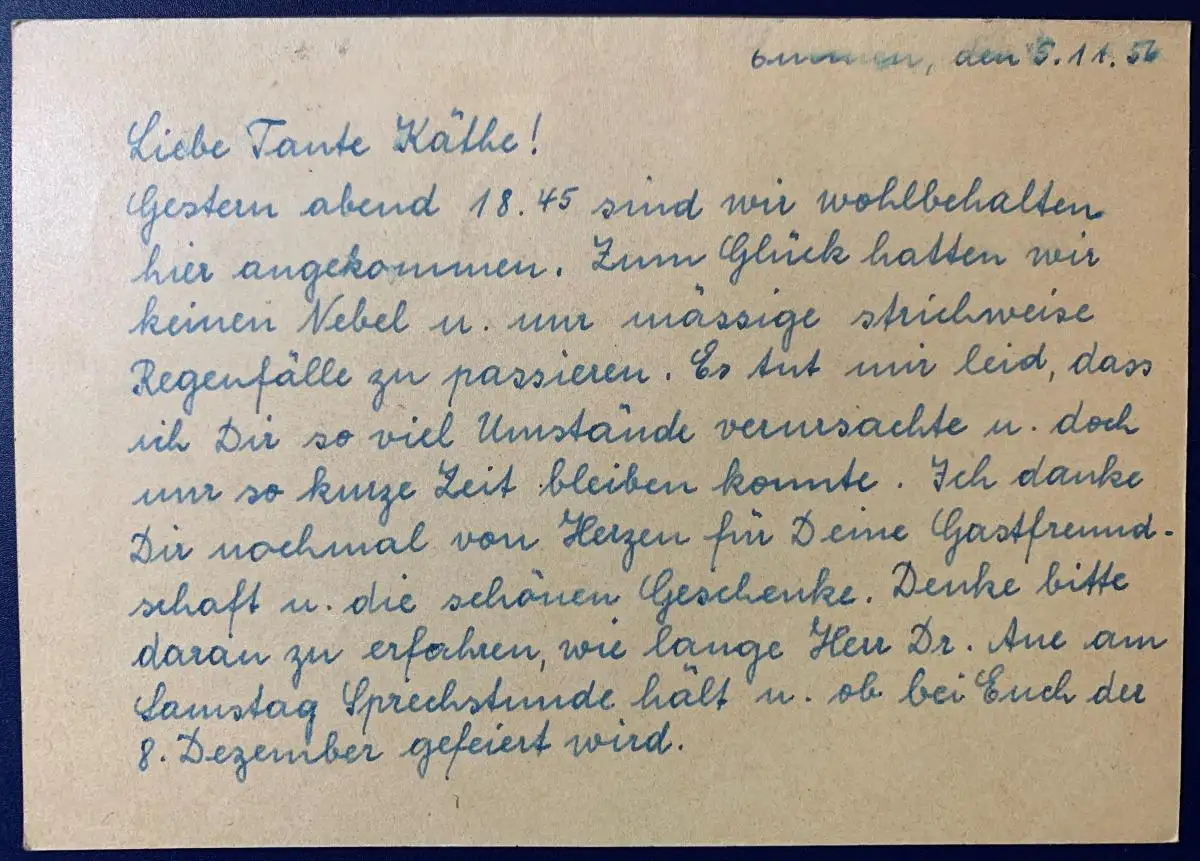 den 5.11.56
Liebe Tante Käthe!
Gestern abend 18.45 sind wir wohlbehalten
hier angekommen. Zum Glück hatten wir
keinen Nebel u. nur mässige strichweise
Regenfälle zu passieren. Es tut mir leid, dass
ich Dir so viel Umstände verursachte u. doch
nur so kurze Zeit bleiben konnte. Ich danke
Dir nochmal von Herzen für Deine Gastfreund-
schaft u. die schönen Geschenke. Denke bitte
daran zu erfahren, wie lange Herr Dr. Aue am
Samstag Sprechstunde hält u. ob bei Euch der
8. Dezember gefeiert wird.